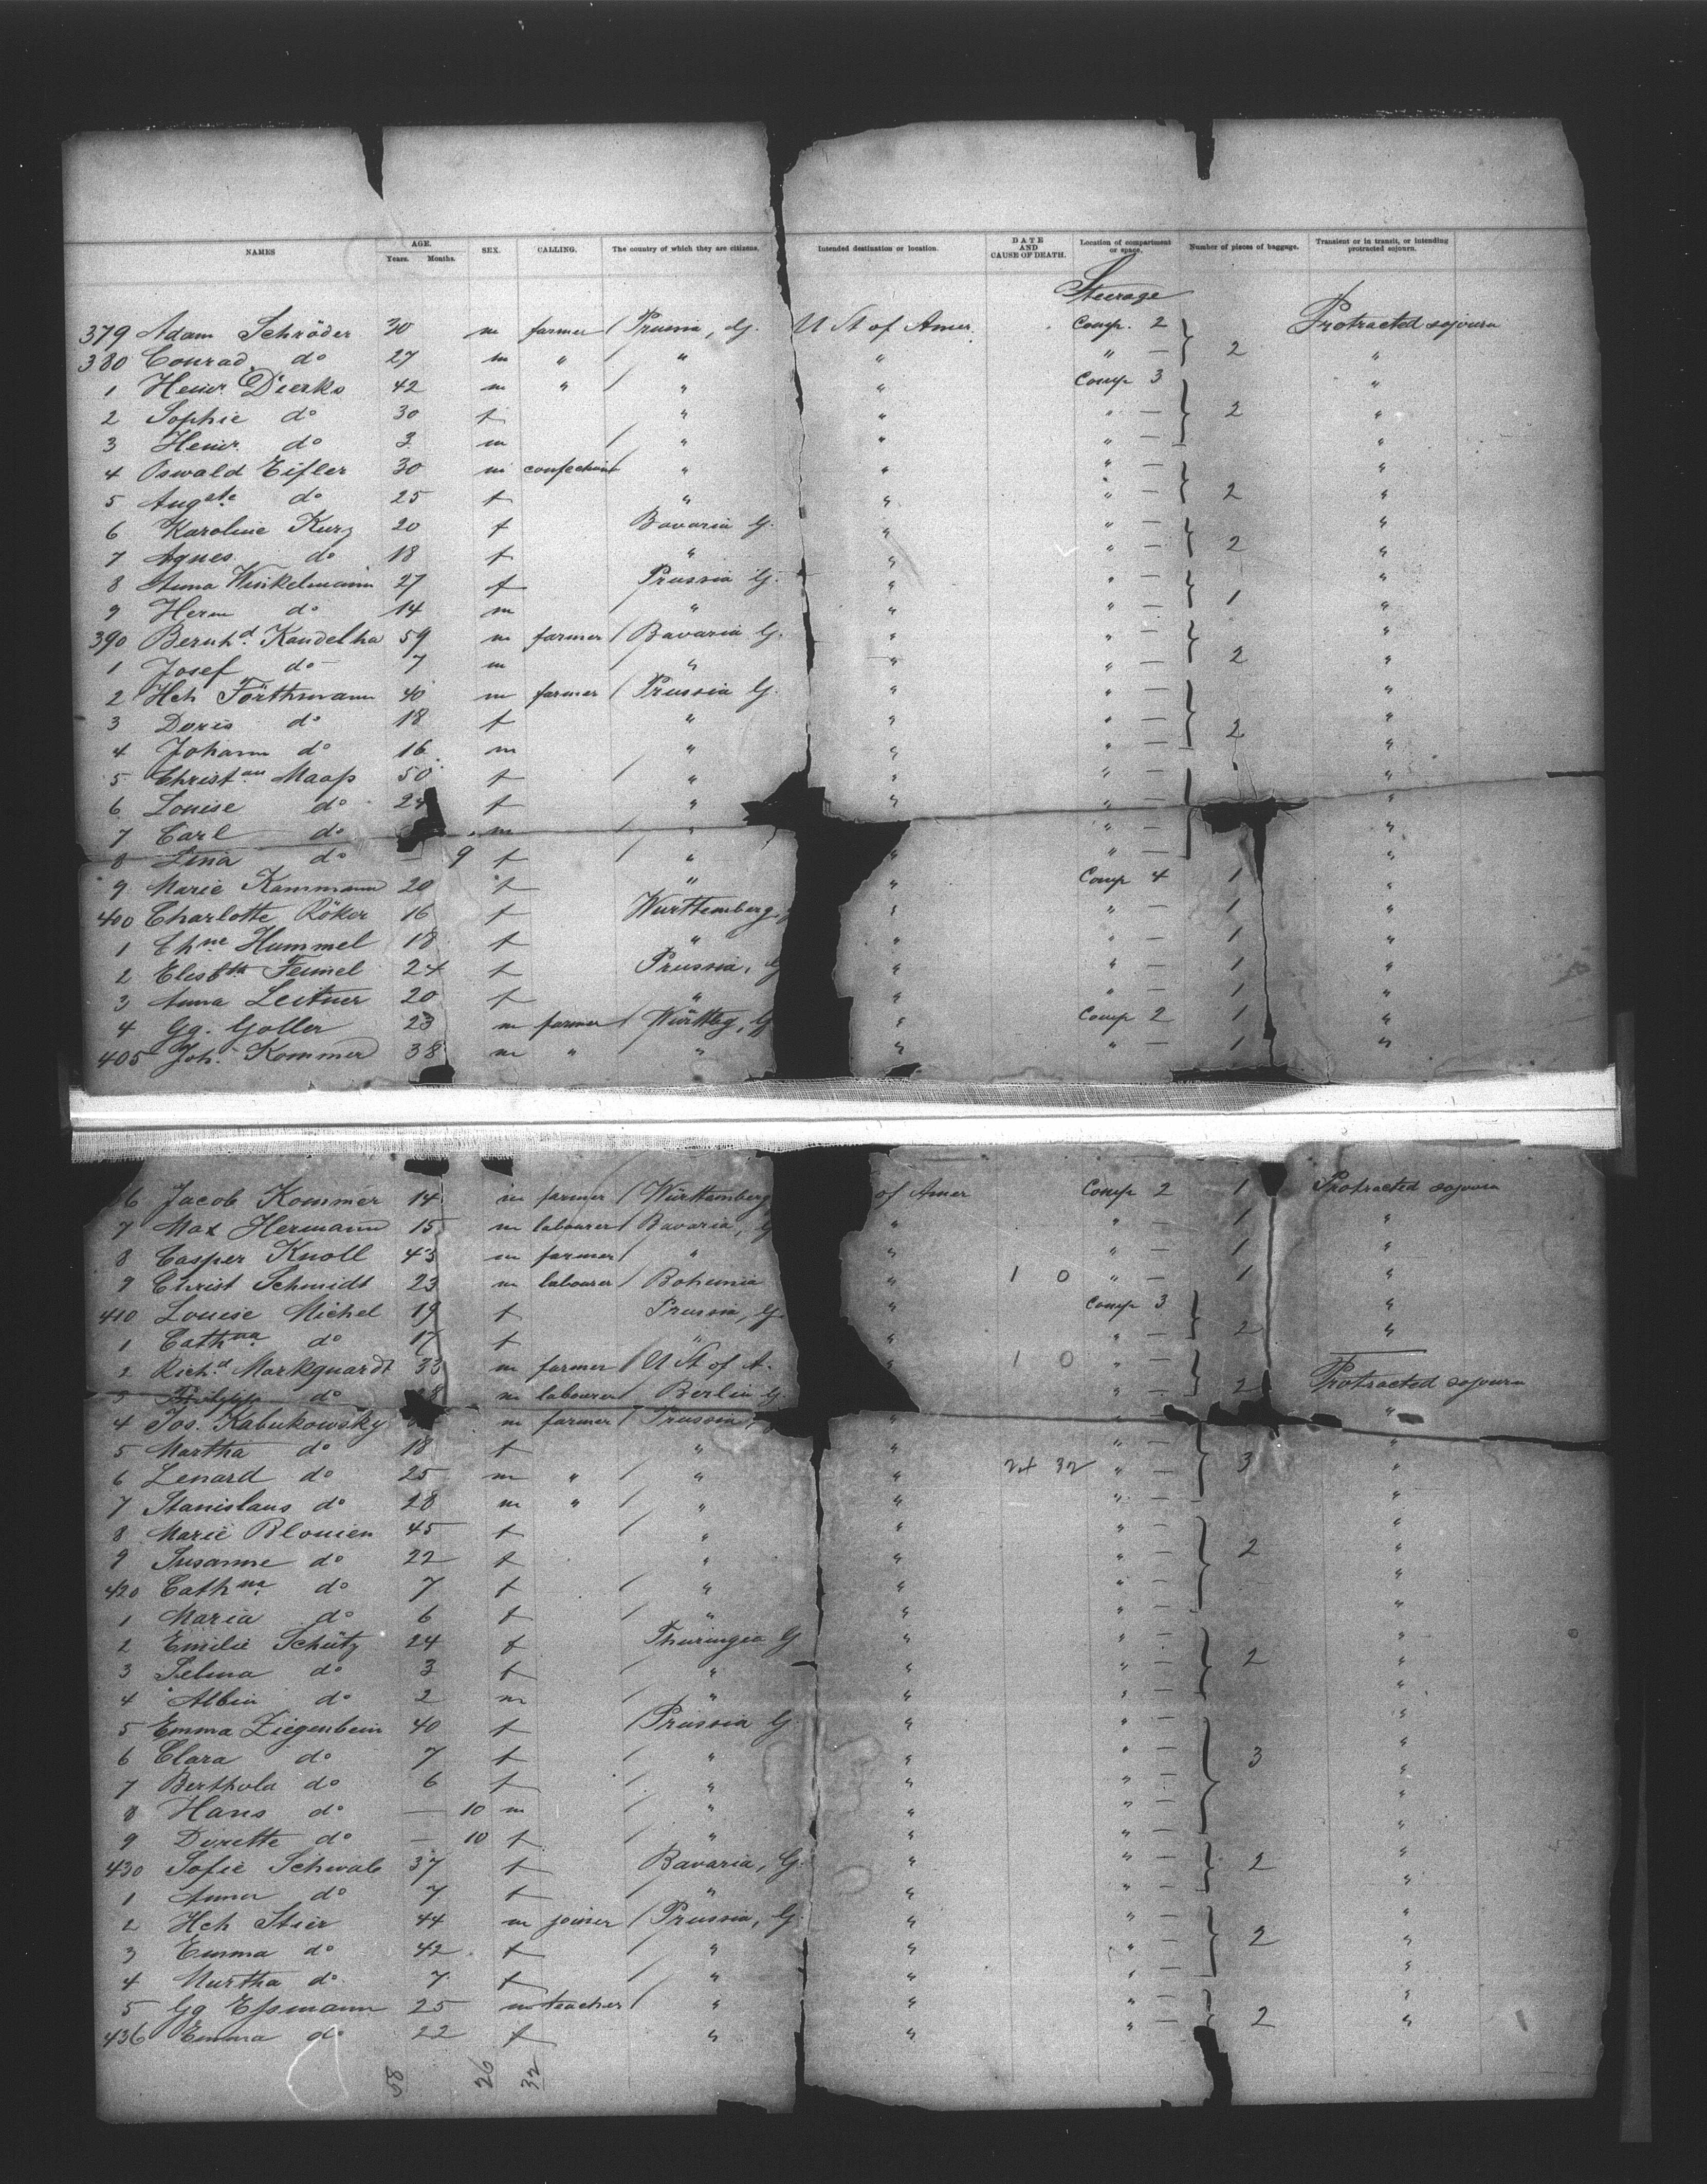 NAMES AGE. Years. Months. SEX. CALLING. The country of which they are citizens. Intended destination or location. DATE AND CAUSE OF DEATH. Location of compartment or space. Number of pieces of baggage. Transient or in transit, or intending protracted sojourn.
Steerage
379 Adam Schröder 30 m farmer / Prussia, G. U St of Amer. Comp. 2 Protracted sojourn
380 Conrad do 27 m " / " " " — } 2 "
1 Heinr. Dierks 42 m " / " " Comp 3 "
2 Sophie do 30 f " " " — } 2 "
3 Heinr. do 3 m / " " " — "
4 Oswald Eifler 30 m / " " " — "
5 Augste do 25 f " " " — } 2 "
6 Karoline Kurz 20 f Bavaria G. " " — "
7 Agnes do 18 f " " " — } 2 "
8 Anna Winkelmann 27 f Prussia G. " " — "
9 Herm do 14 m / " " " — } 1 "
390 Bernhd. Kandelha 59 m farmer / Bavaria G. " " — "
1 Josef do 7 m / " " " — } 2 "
2 Hch Förthmann 40 m farmer / Prussia G. " " — "
3 Doris do 18 f " " " — } 2 "
4 Johann do 16 m " " " — "
5 Christan Maaß 50 f / " " " — "
6 Louise do f " " — "
7 Carl do m / " " — "
8 Lina do — 9 f / " " " — "
9 Marie Kammann 20 f " " Comp 4 1 "
400 Charlotte Röker 16 f Württemberg " " — 1 "
1 Chne Hummel 18 f " " " — 1 "
2 Elisbth Feumel 24 f Prussia, G " " — 1 "
3 Anna Leitner 20 f " " " — 1 "
4 Gg. Goller 23 m farmer / Württbg, G " Comp 2 1 "
405 Joh. Kommer 38 m " / " " " — 1 "
6 Jacob Kommer 14 m farmer / Württemberg of Amer Comp 2 1 Protracted sojourn
7 Max Hermann 15 m labourer / Bavaria, G " " — 1 "
8 Casper Knoll 43 m farmer / " " " — 1 "
9 Christ Schmidt 23 m labourer / Bohemia " 1 0 " — 1 "
410 Louise Michel 19 f Prussia, G. " Comp 3 "
1 Cathna do 17 f " " " — } 2 "
2 Richd Markquardt 33 m farmer / U St of A. " 1 0 " — —
3 do m labourer / Berlin G. " — } 2 Protracted sojourn
4 Jos. Kabukowsky m farmer / Prussia, G " " — "
5 Martha do 18 f " " " — "
6 Lenard do 25 m " / " " 24 32 " — } 3 "
7 Stanislaus do 28 m " / " " " — "
8 Marie Blouien 45 f / " " " — "
9 Susanne do 22 f " " " — } 2 "
420 Cathna do 7 f / " " " — "
1 Maria do 6 f / " " " — "
2 Emilie Schütz 24 f Thuringia G " " — "
3 Selma do 3 f / " " " — } 2 "
4 Albin do 2 m / " " " — "
5 Emma Ziegenbein 40 f / Prussia G " " — "
6 Clara do 7 f / " " " — } 3 "
7 Berthold do 6 f / " " " — "
8 Hans do — 10 m / " " " — "
9 Dorette do — 10 f / " " " — "
430 Sofie Schwab 37 f Bavaria, G. " " — } 2 "
1 Anna do 7 f / " " " — "
2 Hch Stier 44 m joiner / Prussia, G. " " — "
3 Emma do 42 f / " " " — } 2 "
4 Murtha do 7 f / " " " — "
5 Gg Eßmann 25 m teacher / " " " — "
436 Emma do 22 f " " " — } 2 "
58 26 32